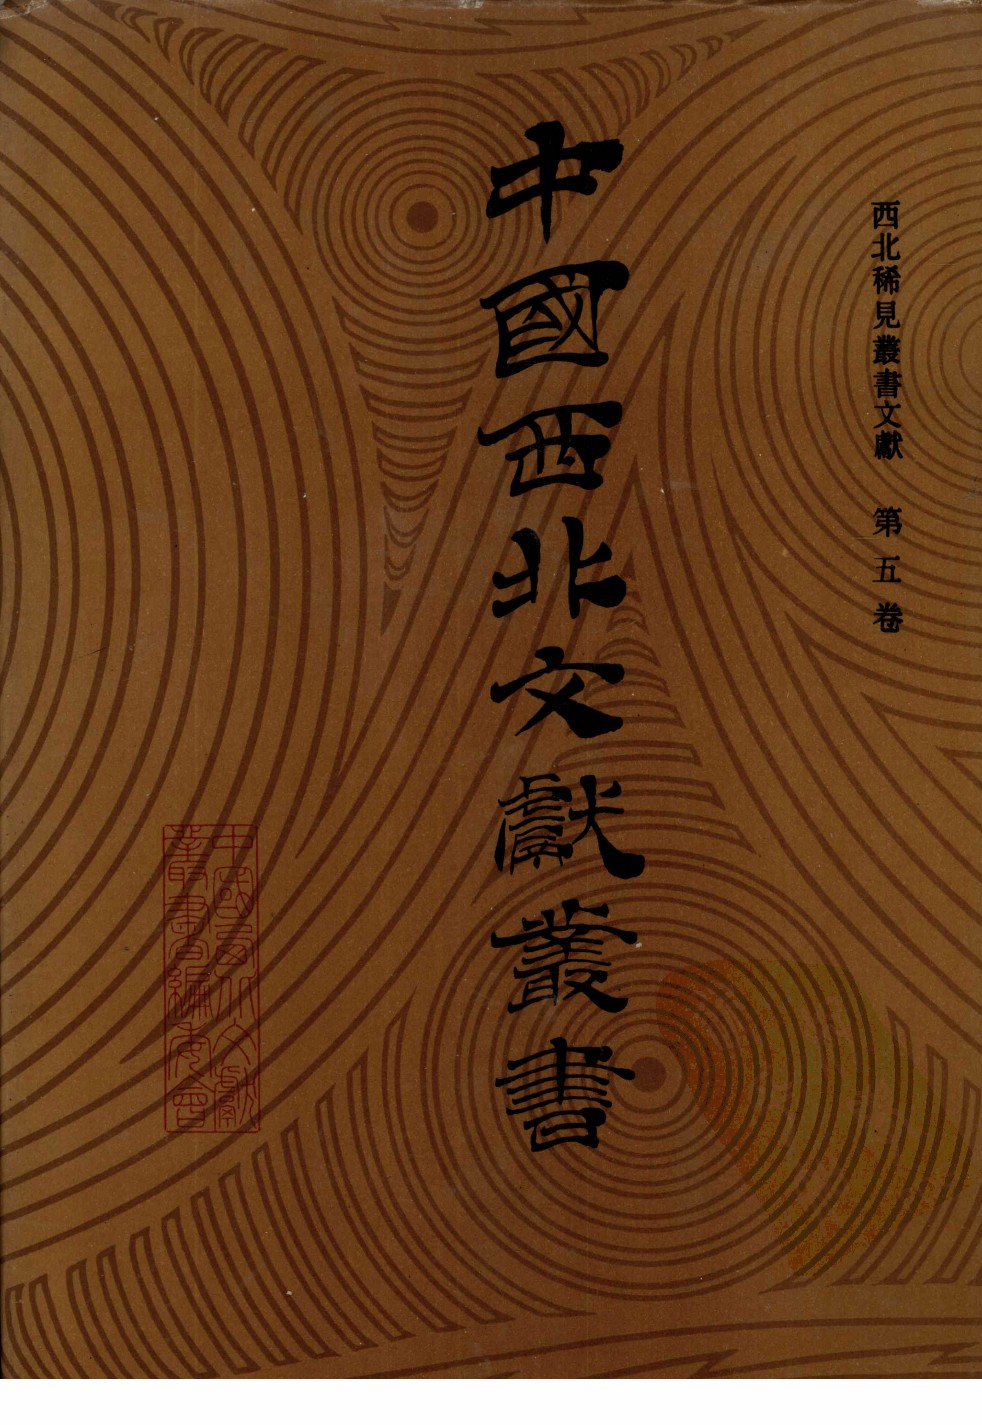 西北稀見叢書文獻 第五卷
中國西北文獻叢書
中國西北文獻
叢書編委會